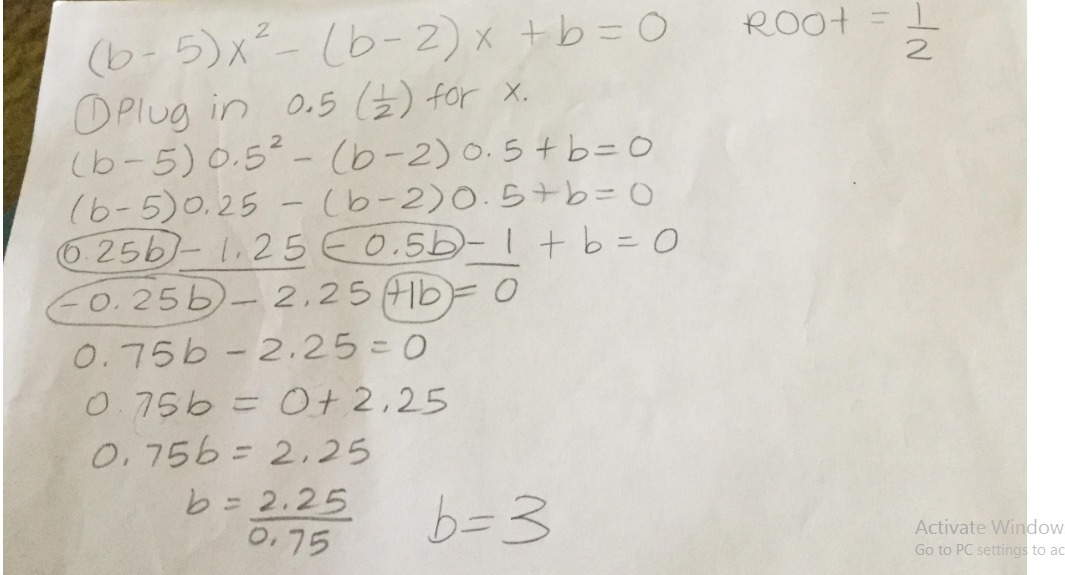 (b-5)x² - (b-2)x + b = 0 Root = 1/2
① Plug in 0.5 (1/2) for x.
(b-5)0.5² - (b-2)0.5 + b = 0
(b-5)0.25 - (b-2)0.5 + b = 0
0.25b - 1.25 - 0.5b - 1 + b = 0
-0.25b - 2.25 + 1b = 0
0.75b - 2.25 = 0
0.75b = 0 + 2.25
0.75b = 2.25
b = 2.25/0.75 b = 3
Activate Window
Go to PC settings to ac